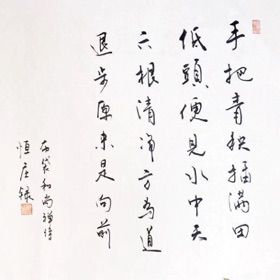 手把青秧插滿田
低頭便見水中天
六根清净方為道
退步原来是向前
布袋和尚禅诗
恒庄録